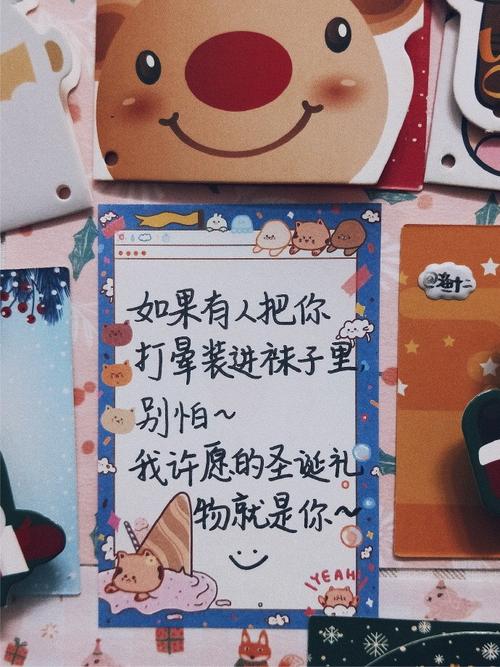 如果有人把你
打晕装进袜子里，
别怕～
我许愿的圣诞礼
物就是你～
YEAH